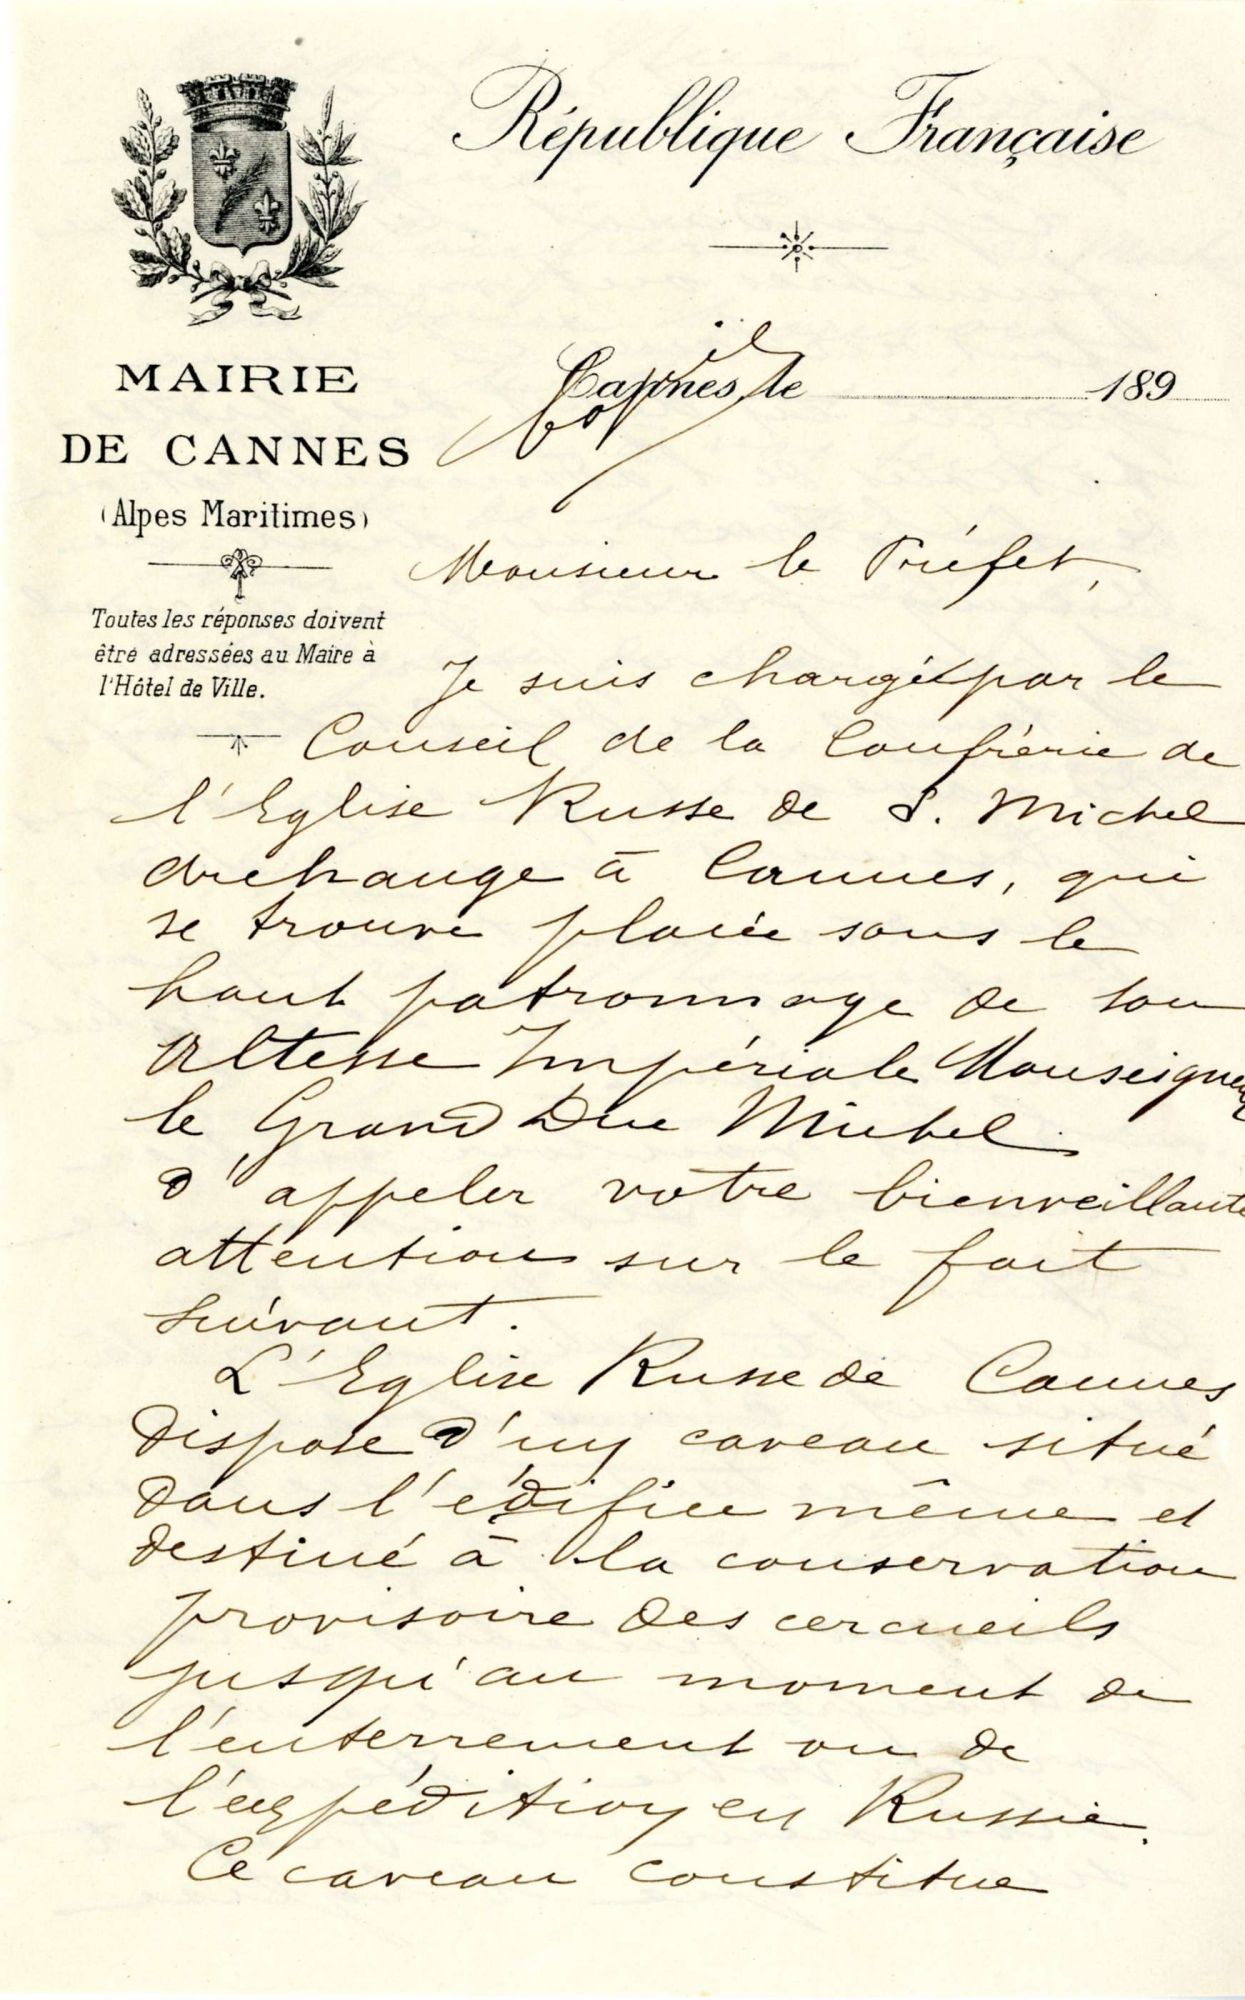 République Française
MAIRIE
DE CANNES
(Alpes Maritimes)
Toutes les réponses doivent
être adressées au Maire à
l'Hôtel de Ville.
Cannes, le 189
Copie
Monsieur le Préfet,
Je suis chargé par le
Conseil de la Confrérie de
l'Eglise Russe de S. Michel
Archange à Cannes, qui
se trouve placée sous le
haut patronnage de Son
Altesse Impériale Monseigneur
le Grand Duc Michel
d'appeler votre bienveillante
attention sur le fait
suivant.
L'Eglise Russe de Cannes
dispose d'un caveau situé
dans l'édifice même et
destiné à la conservation
provisoire des cercueils
jusqu'au moment de
l'enterrement ou de
l'expédition en Russie.
Ce caveau constitue